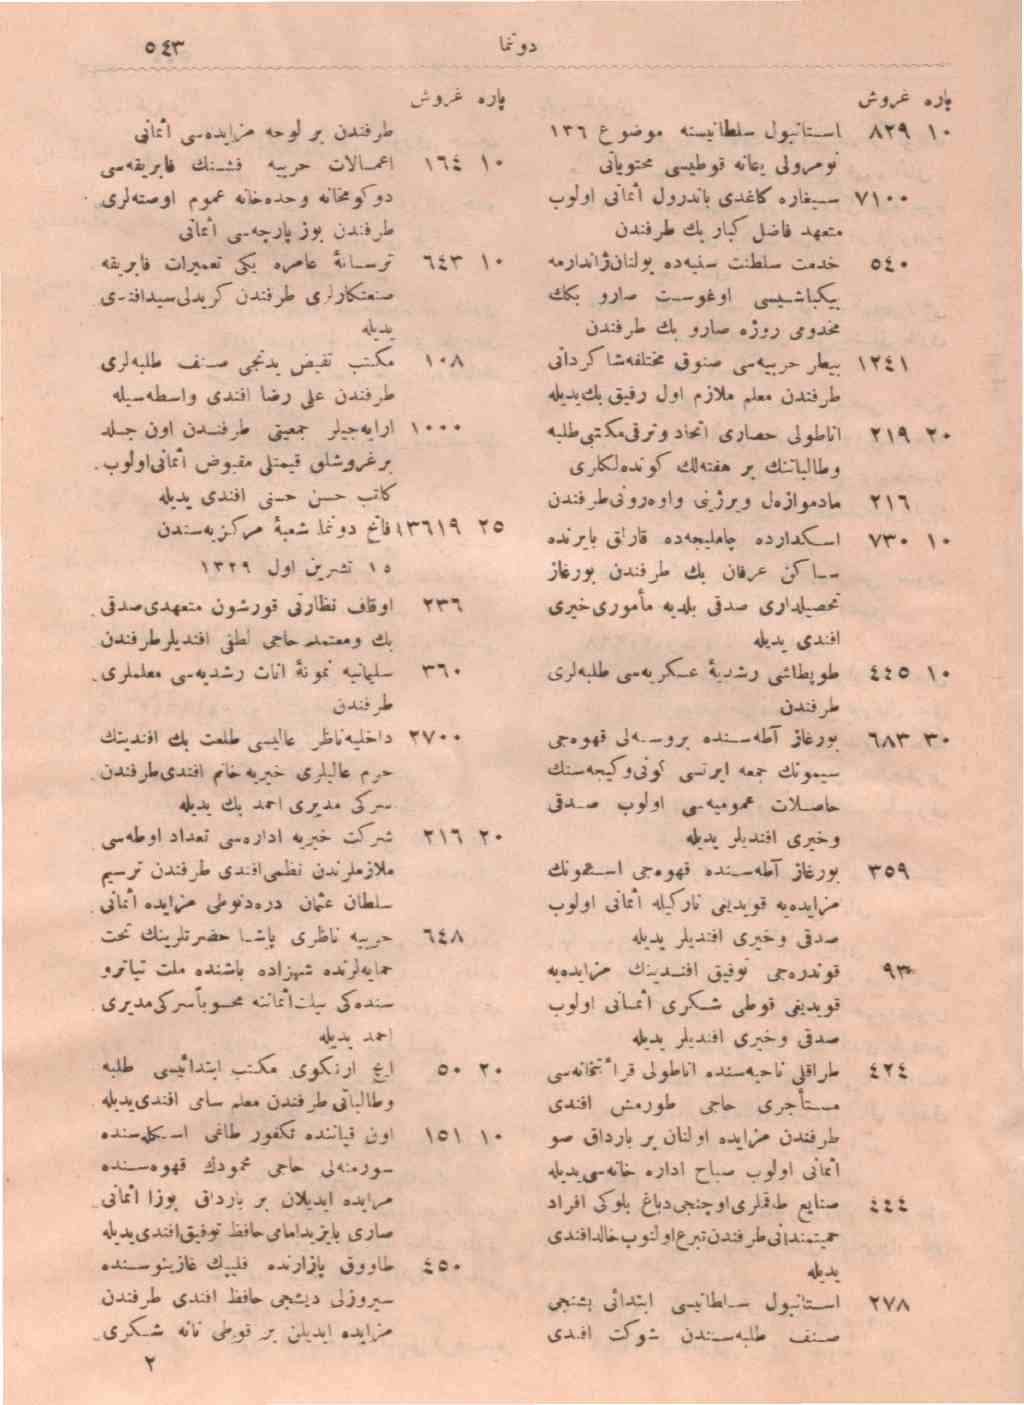 دوننما
٥٤٣
پاره غروش
١٠ ٨٢٩ استانبول سلطانیسنه موضوع ١٣٦
نومرولی اعانه قوطیسی محتویاتی
٧١٠٠ سیغاره کاغدی باندرول اثمانی اولوب
متعهد فاضل کبار بك طرفندن
٥٤٠ خدمت سلطنت سنیه‌ده بولنان ژاندارمه
بیکباشیسی اوغوست صارو بكك
مخدومی روژه صارو بك طرفندن
١٢٤١ بیطر حربیه‌سی صنوف مختلفه شاکردانی
طرفندن معلم ملازم اول رفیق بك یدیله
٢٠ ٢١٩ اناطولی حصاری اتحاد وترقی مکتبی طلبه
وطالباتنك بر هفته‌لك کونده‌لکلری
٢١٦ مادموازه‌ل ویرژینی واوه‌رونی طرفندن
١٠ ٧٣٠ اسکدارده چاملیجه‌ده قارلق بایرنده
ساکن عرفان بك طرفندن بورغاز
تحصیلداری صدقی بلدیه مأموری خیری
افندی یدیله
١٠ ٤٤٥ طوپطاشی رشدیهٔ عسکریه‌سی طلبه‌لری
طرفندن
٣٠ ٦٨٣ بورغاز آطه‌سنده بروسه‌لی قهوه‌جی
سیمونك جمعه ایرتسی کونی وکیجه‌سنك
حاصلات عمومیه‌سی اولوب صدقی
وخیری افندیلر یدیله
٣٥٩ بورغاز آطه‌سنده قهوه‌جی اسیمونك
مزایده‌یه قویدیغی نارکیله اثمانی اولوب
صدقی وخیری افندیلر یدیله
٩٣ قوندره‌جی توفیق افندینك مزایده‌یه
قویدیغی قوطی شکری اثمانی اولوب
صدقی وخیری افندیلر یدیله
٤٢٤ طراقلی ناحیه‌سنده اناطولی قرائتخانه‌سی
مستأجری حاجی طورمش افندی
طرفندن مزایده اولنان بر بارداق صو
اثمانی اولوب صباح اداره خانه‌سی یدیله
٤٤٤ صنایع طاقملری اوچنجی دباغ بلوکی افراد
حمیتمندانی طرفندن تبرع اولنوب خالد افندی
یدیله
٢٧٨ استانبول سلطانیسی ابتدائی بشنجی
صنف طلبه‌سندن شوکت افندی
پاره غروش
طرفندن بر لوحه مزایده‌سی اثمانی
١٠ ١٦٤ اعمالات حربیه فشنك فابریقه‌سی
دوکومخانه وحده‌خانه عموم اوسته‌لری
طرفندن بوز پارچه‌سی اثمانی
١٠ ٦٤٣ ترسانهٔ عامره یکی تعمیرات فابریقه
صنعتکارلری طرفندن کریدلی سید افندی
یدیله
١٠٨ مکتب تفیض یدنجی صنف طلبه‌لری
طرفندن علی رضا افندی واسطه‌سیله
١٠٠٠ ارابه‌جیلر جمعیتی طرفندن اون جلد
بر غروشلق قیمتلی مقبوض اثمانی اولوب
کاتب حسن حسنی افندی یدیله
٢٥ ١٣٦١٩ فاتح دوننما شعبهٔ مرکزیه‌سندن
١٥ تشرین اول ١٣٢٩
٢٣٦ اوقاف نظارتی قورشون متعهدی صدقی
بك ومعتمد حاجی لطفی افندیلر طرفندن
٣٦٠ سلیمانیه نمونهٔ اناث رشدیه‌سی معلملری
طرفندن
٢٧٠٠ داخلیه ناظر عالیسی طلعت بك افندینك
حرم عالیلری خیریه خانم افندی طرفندن
سرکی مدیری احمد بك یدیله
٢٠ ٢١٦ شرکت خیریه اداره‌سی تعداد اوطه‌سی
ملازملرندن نظمی افندی طرفندن ترسیم
سلطان عثمان دره‌دنوطی مزایده اثمانی
٦٤٨ حربیه ناظری پاشا حضرتلرینك تحت
حمایه‌لرنده شهزاده باشنده ملت تیاترو
سنده‌کی بیلت اثماننه محسوباً سرکی مدیری
احمد یدیله
٢٠ ٥٠ ایچ ارنکوی مکتب ابتدائیسی طلبه
وطالباتی طرفندن معلم سامی افندی یدیله
١٠ ١٥١ اون قپاننده تکفور طاغی اسکله‌سنده
سورمنه‌لی حاجی محمودك قهوه‌سنده
مزایده ایدیلان بر بارداق بوزا اثمانی
صاری بایزید امامی حافظ توفیق افندی یدیله
٤٥٠ طاووق پازارنده فلیپك غازینوسنده
سیروزلی دیشجی حافظ افندی طرفندن
مزایده ایدیلن بر قوطی نانه شکری
٢